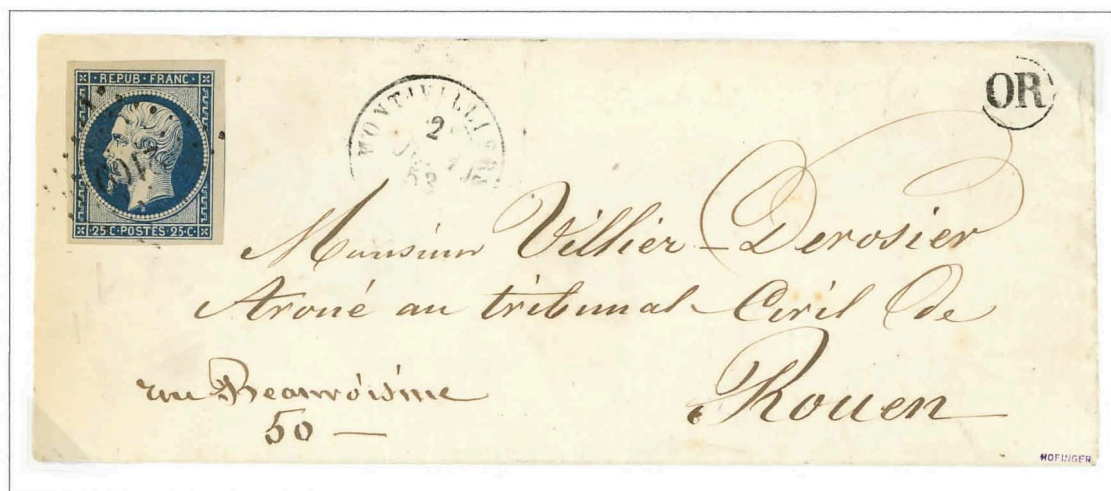 REPUB·FRANC·
25·C·POSTES·25·C·
MONTIVILLIERS
2
53
OR
Monsieur Villier-Derosier
Avoué au tribunal Civil de
Rouen
rue Beauvoisine
50 —
HOFINGER